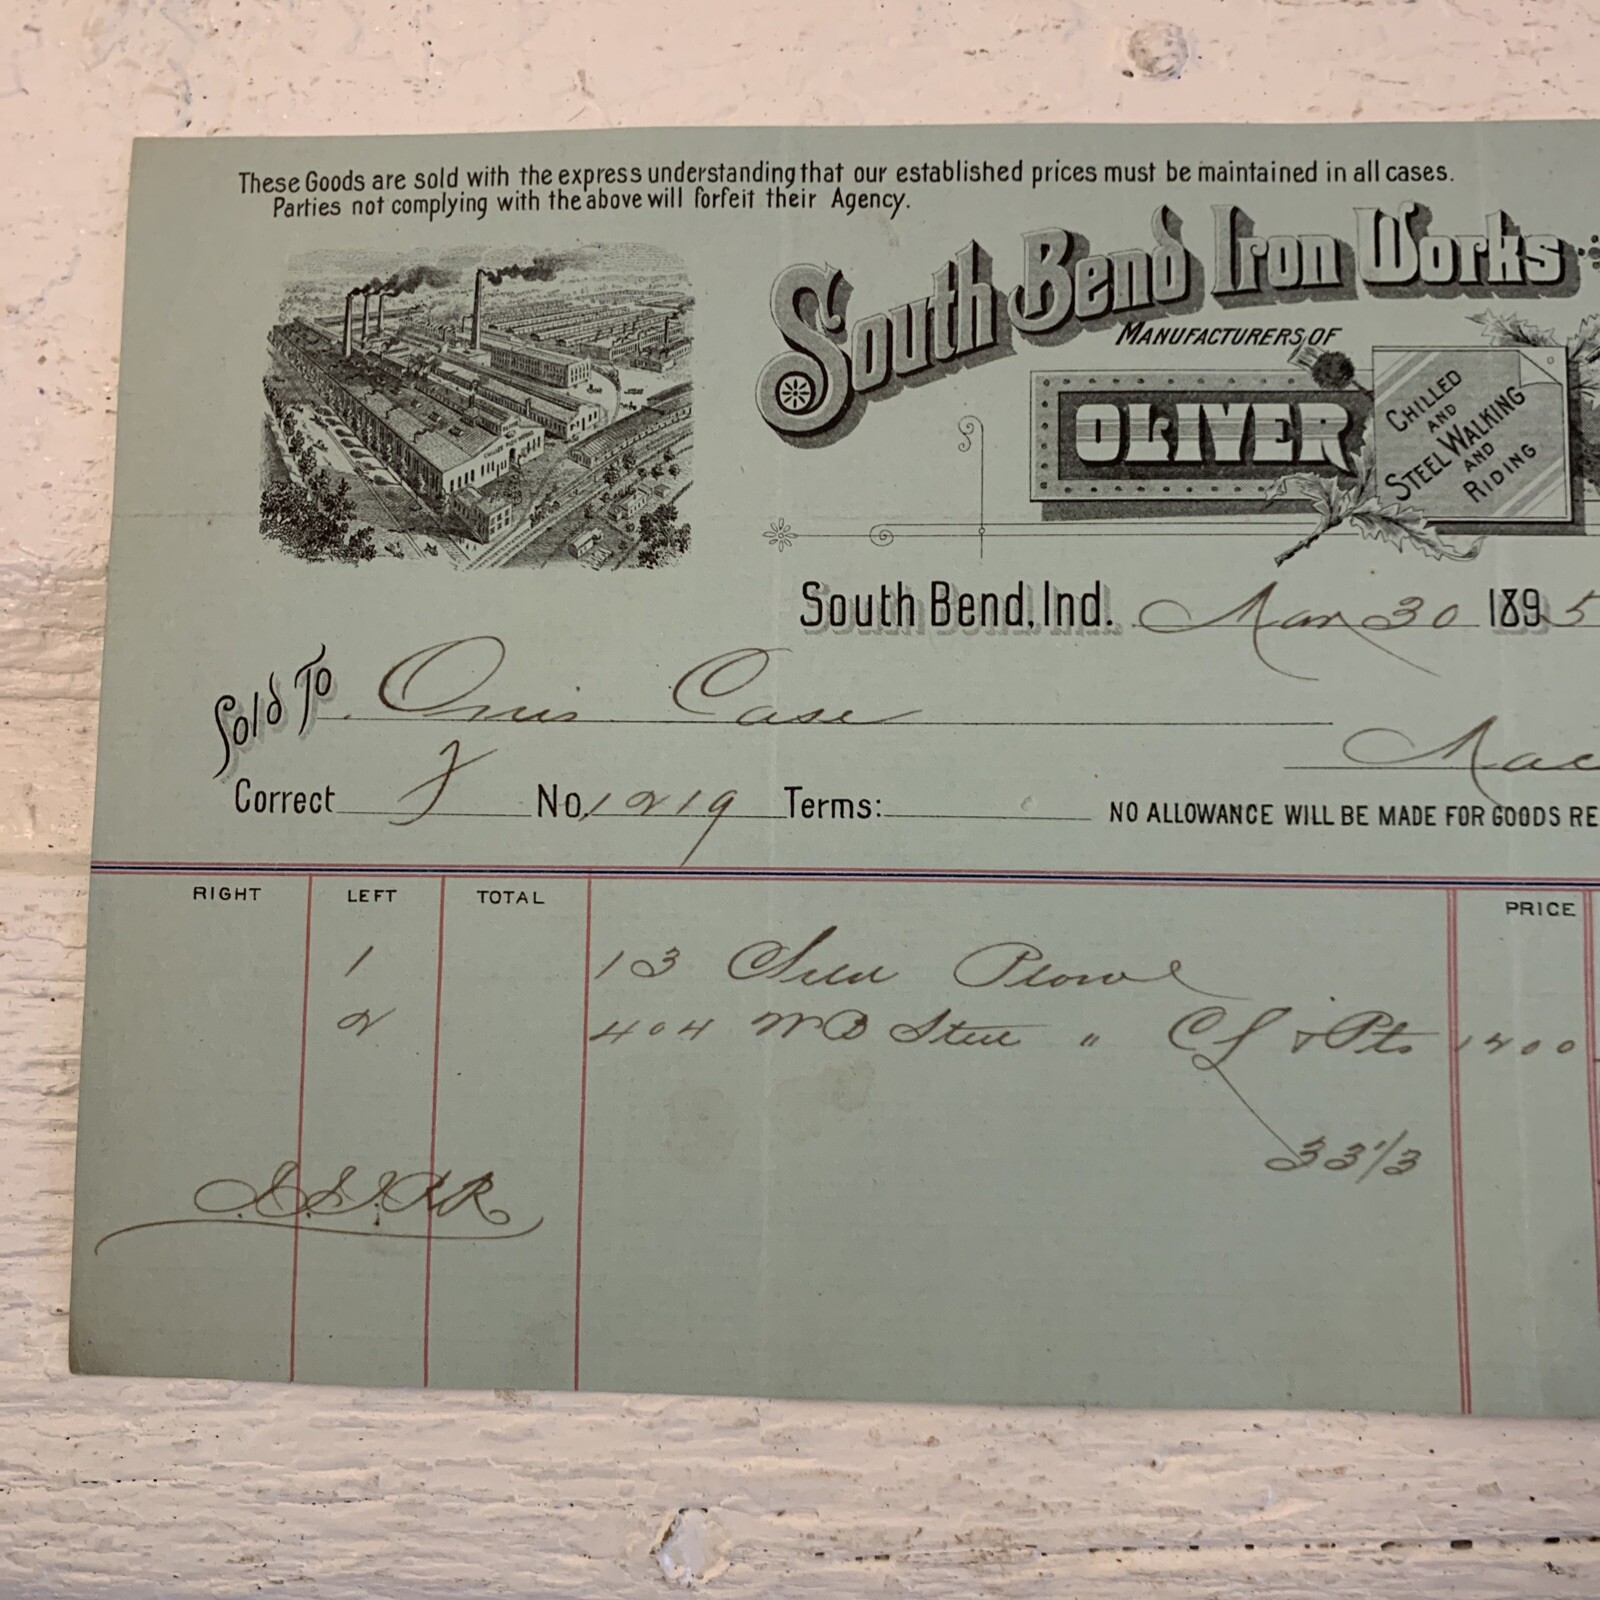 These Goods are sold with the express understanding that our established prices must be maintained in all cases.
Parties not complying with the above will forfeit their Agency.
South Bend Iron Works
MANUFACTURERS OF
OLIVER
CHILLED
AND
STEEL WALKING
AND
RIDING
South Bend, Ind. Mar 30 1895
Sold To Orris Case
Mac
Correct No. 1219 Terms: NO ALLOWANCE WILL BE MADE FOR GOODS RE
RIGHT LEFT TOTAL PRICE
1 13 Plows
2 404 WB Steel " & Pts 1400
33 1/3